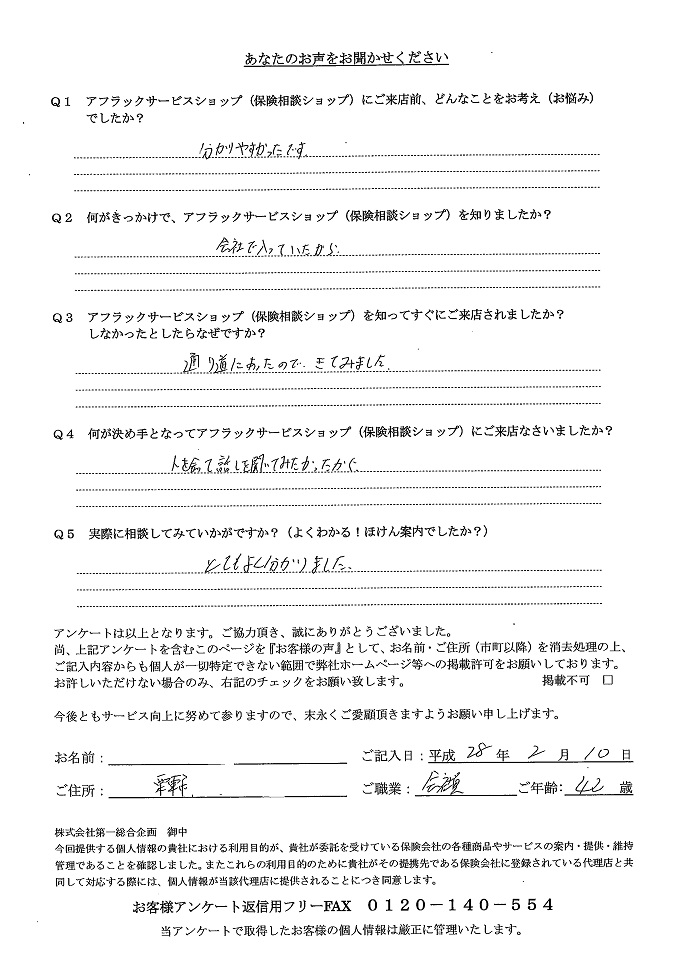 あなたのお声をお聞かせください
Q1 アフラックサービスショップ（保険相談ショップ）にご来店前、どんなことをお考え（お悩み）
でしたか？
分かりやすかったです。
Q2 何がきっかけで、アフラックサービスショップ（保険相談ショップ）を知りましたか？
会社で入っていたから
Q3 アフラックサービスショップ（保険相談ショップ）を知ってすぐにご来店されましたか？
しなかったとしたらなぜですか？
通り道にあったので、きてみました。
Q4 何が決め手となってアフラックサービスショップ（保険相談ショップ）にご来店なさいましたか？
話しを聞いてみたかったから
Q5 実際に相談してみていかがですか？（よくわかる！ほけん案内でしたか？）
とてもよく分かりました。
アンケートは以上となります。ご協力頂き、誠にありがとうございました。
尚、上記アンケートを含むこのページを『お客様の声』として、お名前・ご住所（市町以降）を消去処理の上、
ご記入内容からも個人が一切特定できない範囲で弊社ホームページ等への掲載許可をお願いしております。
お許しいただけない場合のみ、右記のチェックをお願い致します。 掲載不可 □
今後ともサービス向上に努めて参りますので、末永くご愛顧頂きますようお願い申し上げます。
お名前： ご記入日：平成 28 年 2 月 10 日
ご住所： ご職業： ご年齢：42 歳
株式会社第一総合企画 御中
今回提供する個人情報の貴社における利用目的が、貴社が委託を受けている保険会社の各種商品やサービスの案内・提供・維持
管理であることを確認しました。またこれらの利用目的のために貴社がその提携先である保険会社に登録されている代理店と共
同して対応する際には、個人情報が当該代理店に提供されることにつき同意します。
お客様アンケート返信用フリーFAX 0120－140－554
当アンケートで取得したお客様の個人情報は厳正に管理いたします。